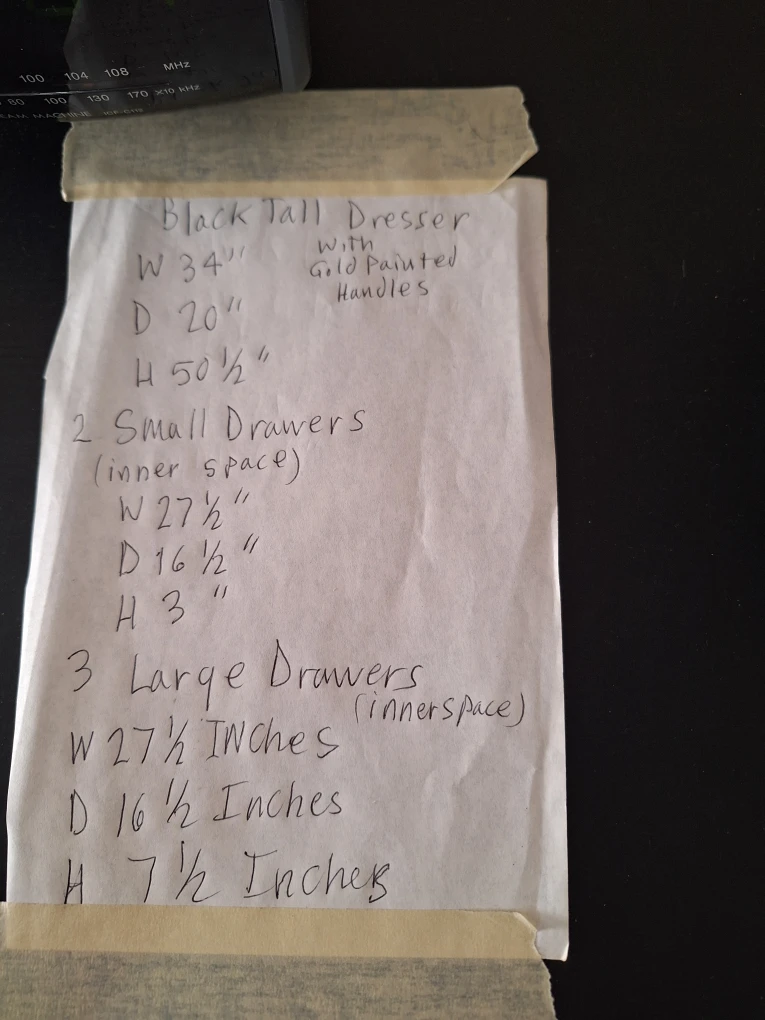 100 104 108 MHz
80 100 130 170 X10 kHz
Black Tall Dresser
With
Gold Painted
Handles
W 34"
D 20"
H 50 1/2"
2 Small Drawers
(inner space)
W 27 1/2"
D 16 1/2"
H 3"
3 Large Drawers
(innerspace)
W 27 1/2 INches
D 16 1/2 Inches
H 7 1/2 Inches